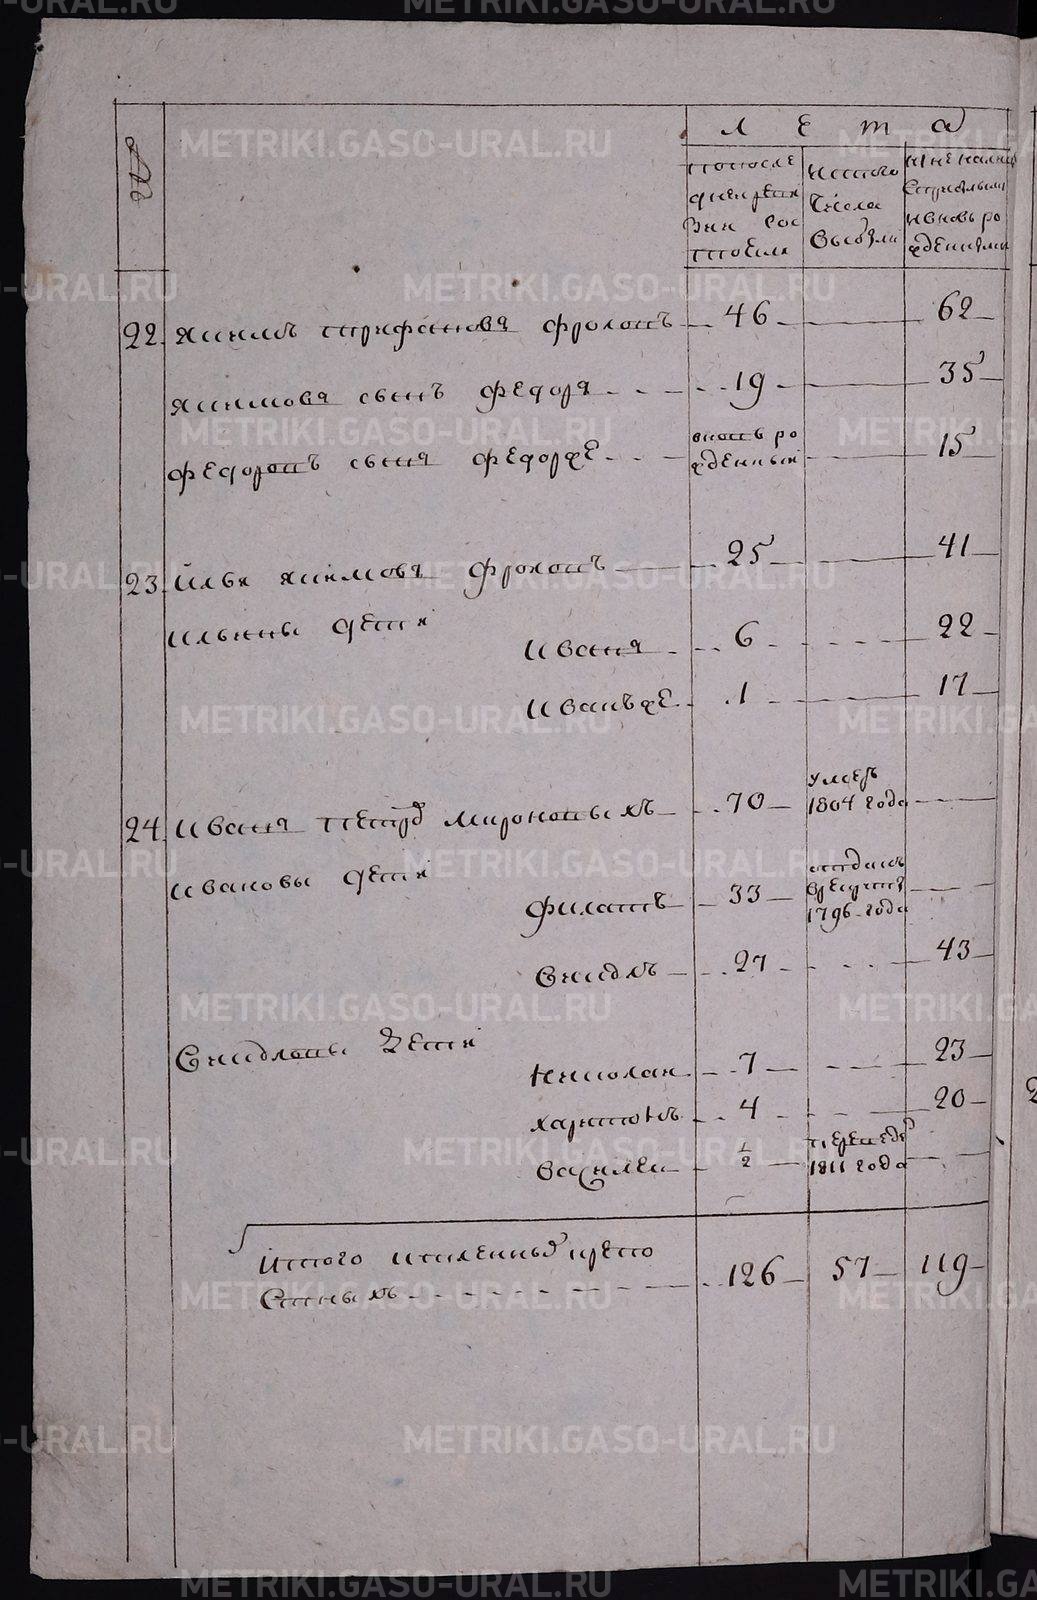 №
лета
по последней ревизии состояли
из того числа выбыли
ныне налицо
и вновь рожденными
22 Якимъ Трифановъ Фроловъ 46 62
Якимова сынъ Федоръ 19 35
Федоровъ сынъ Федорже вновь рожденный 15
23 Илья Якимовъ Фроловъ 25 41
Ильины дети
Иванъ 6 22
Иванъже 1 17
24 Иванъ Петров Мироновыхъ 70 умеръ 1804 года
Ивановы дети
Филатъ 33 отданъ в рекруты 1796 года
27 43
дети
Николаи 7 23
Харитонъ 4 20
Василеи 1/2 1811 года
Итого 126 57 119
METRIKI.GASO-URAL.RU